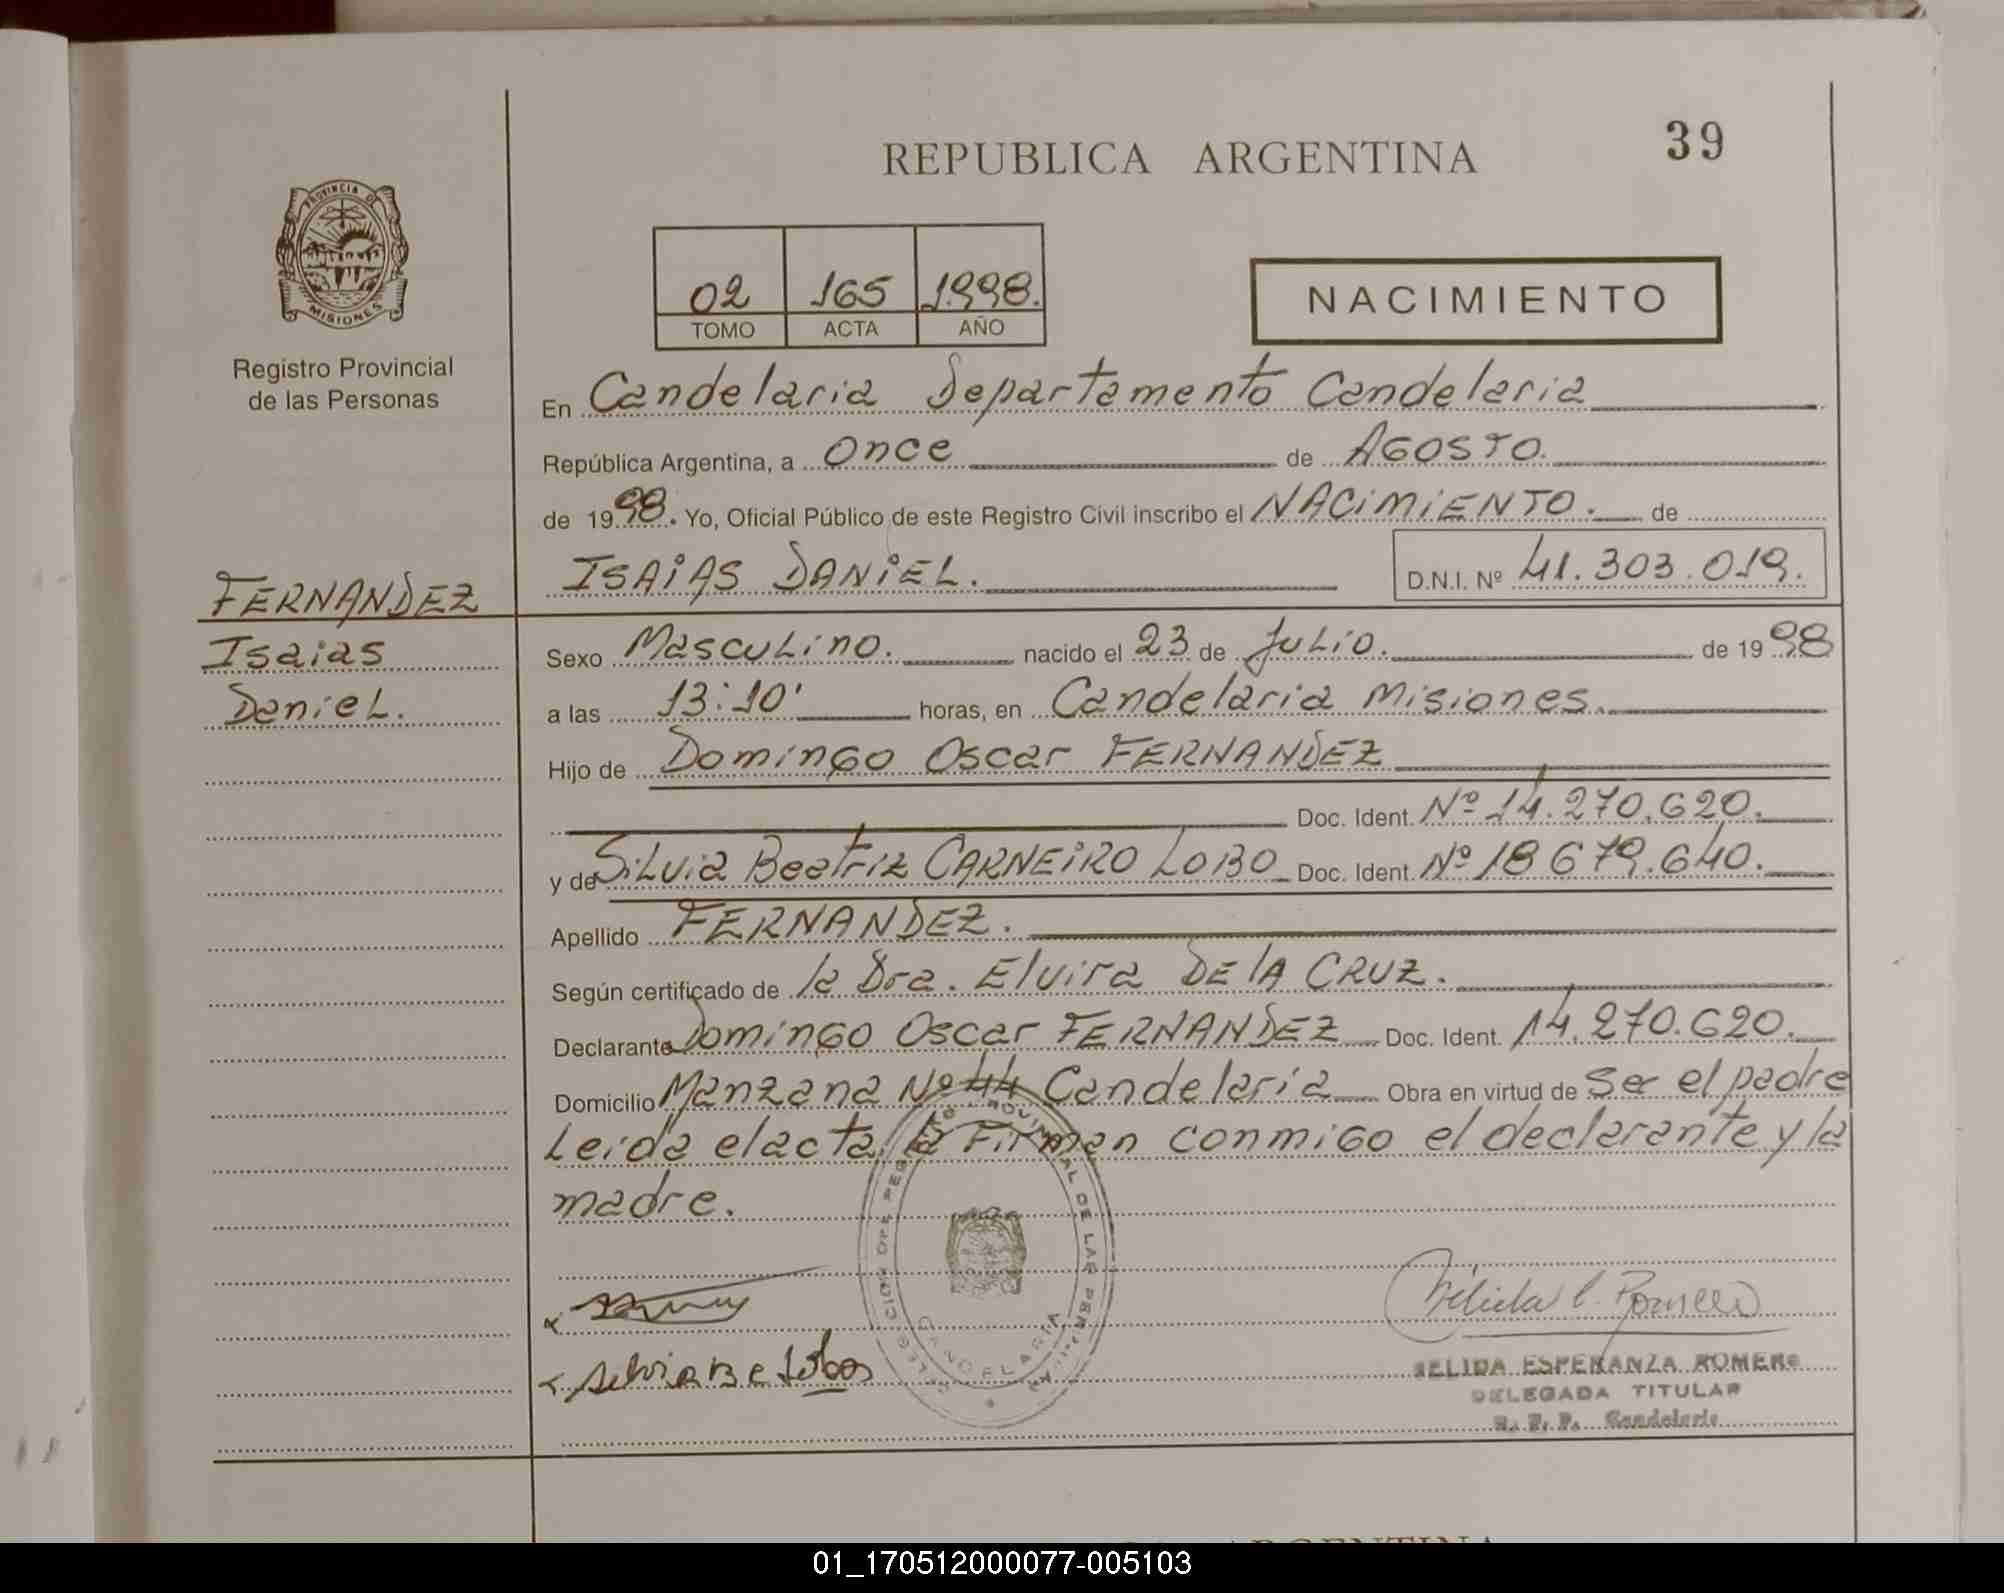 39
REPUBLICA ARGENTINA
PROVINCIA DE
MISIONES
02 165 1.998.
TOMO ACTA AÑO
NACIMIENTO
Registro Provincial
de las Personas
En Candelaria Departamento Candelaria
República Argentina, a once de AGOSTO.
de 1998. Yo, Oficial Público de este Registro Civil inscribo el NACIMIENTO. de
ISAIAS DANIEL. D.N.I. Nº 41.303.019.
FERNANDEZ
Isaias
Daniel.
Sexo Masculino. nacido el 23 de Julio. de 1998
a las 13:10' horas, en Candelaria Misiones.
Hijo de Domingo Oscar FERNANDEZ
Doc. Ident. Nº 14.270.620.
y de Silvia Beatriz CARNEIRO LOBO Doc. Ident. Nº 18679.640.
Apellido FERNANDEZ.
Según certificado de la Dra. Elvira DE lA CRUZ.
Declarante Domingo Oscar FERNANDEZ Doc. Ident. 14.270.620.
Domicilio Manzana Nº 44 Candelaria Obra en virtud de ser el padre
Leida el acta la Firman conmigo el declarante y la
madre.
CANDELARIA
Nélida E. Romero
NELIDA ESPERANZA ROMERO
DELEGADA TITULAR
R. P. P. Candelaria
ARGENTINA
01_170512000077-005103